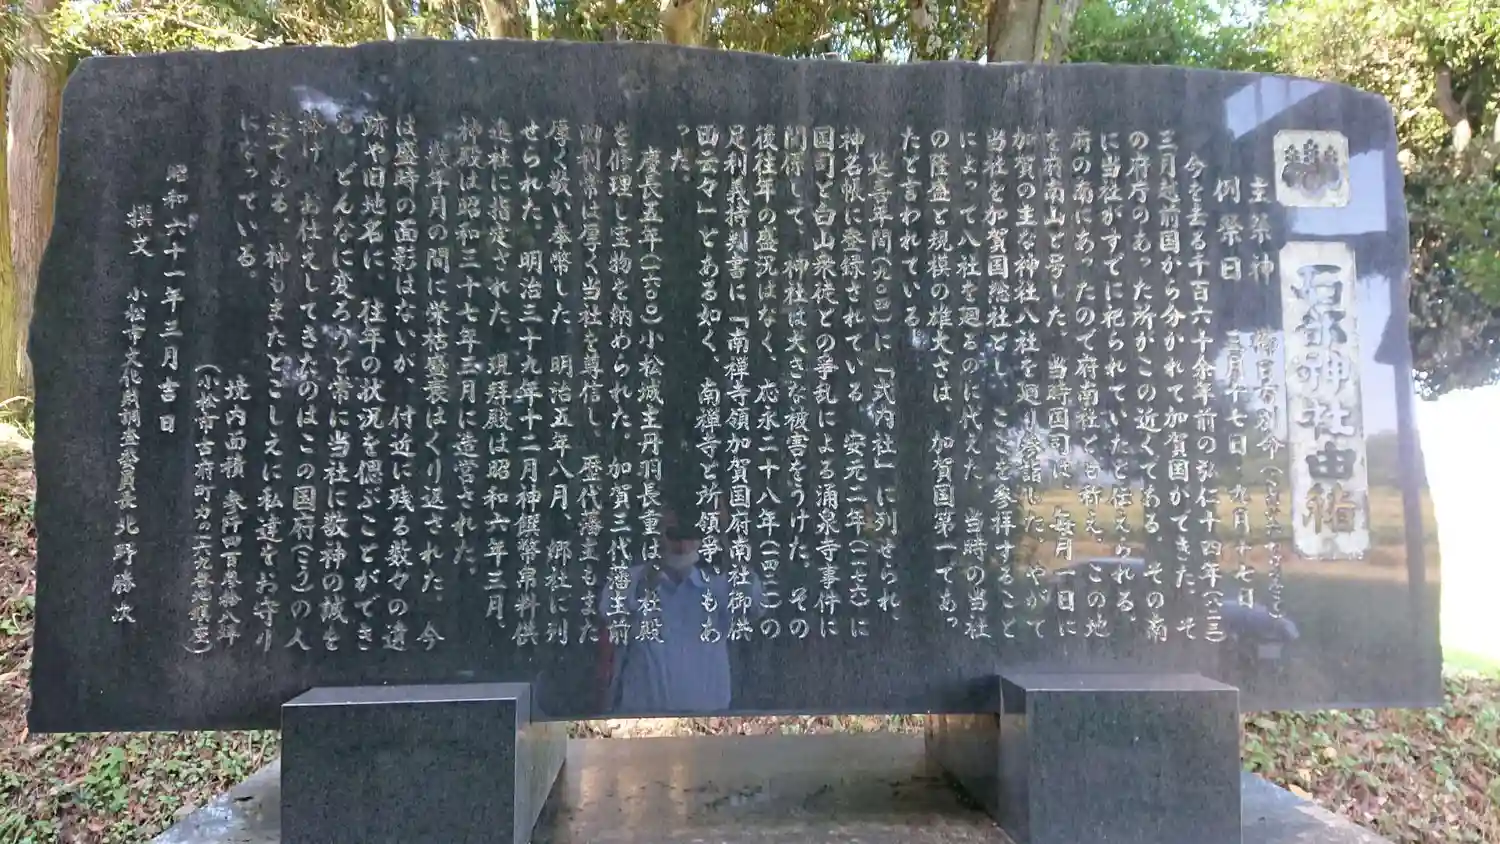 石部神社由緒
主祭神　櫛日方別命
例祭日　三月十七日　九月十七日
今を去る千百六十余年前の弘仁十四年(八二三)
三月越前国から分かれて加賀国ができた。そ
の府庁のあった所がこの近くである。その南
に当社がすでに祀られていたと伝えられる。
府の南にあったので府南社とも称え、この地
を府南山と号した。当時国司は、毎月一日に
加賀の主な神社八社を廻り参詣した。やがて
当社を加賀国総社とし、ここを参拝すること
によって八社を廻るのに代えた。当時の当社
の隆盛と規模の雄大さは、加賀国第一であっ
たと言われている。
延喜年間(九〇四)に「式内社」に列せられ、
神名帳に登録されている。安元二年(一一七六)に
国司と白山衆徒との争乱による涌泉寺事件に
関係して、神社は大きな被害をうけた。その
後往年の盛況はなく、応永二十八年(一四二一)の
足利義持判書に「南禅寺領加賀国府南社御供
田云々」とある如く、南禅寺と所領争いもあ
った。
慶長五年(一六〇〇)小松城主丹羽長重は、社殿
を修理し宝物を納められた。加賀三代藩主前
田利常は厚く当社を尊信し、歴代藩主もまた
厚く敬い奉幣した。明治五年八月、郷社に列
せられた。明治三十九年十二月神饌幣帛料供
進社に指定された。現拝殿は昭和六年三月、
神殿は昭和三十七年三月に造営された。
幾年月の間に栄枯盛衰はくり返された。今
は盛時の面影はないが、付近に残る数々の遺
跡や旧地名に、往年の状況を偲ぶことができ
る。どんなに変ろうと常に当社に敬神の誠を
捧げ、お仕えしてきたのはこの国府(こう)の人
達である。神もまたとこしえに私達をお守り
になっている。
境内面積　参阡四百参拾八坪
(小松市古府町カの一六九番地
昭和六十一年三月吉日
撰文　小松市文化財調査委員長北野勝次